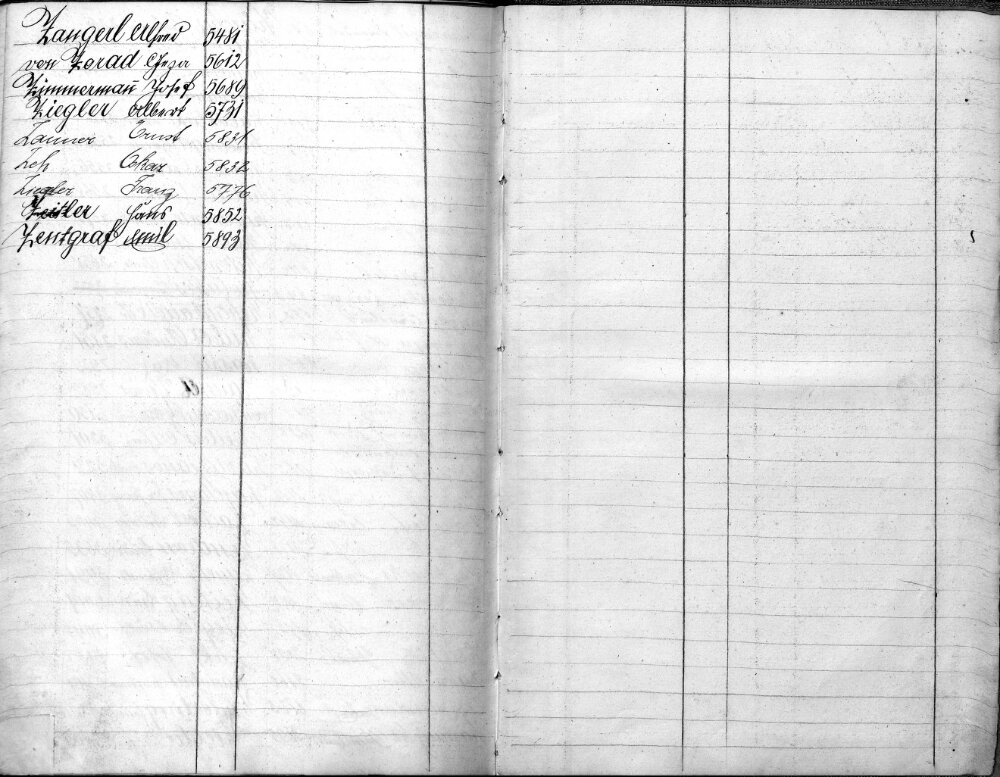 Zangerl Alfred 5481
von Zerad Geza 5612
Zimmermann Josef 5689
Ziegler Albert 5731
Zanner Ernst 5831
Zeh Oskar 5832
Ziegler Franz 5776
Zeitler Hans 5852
Zentgraf Emil 5893